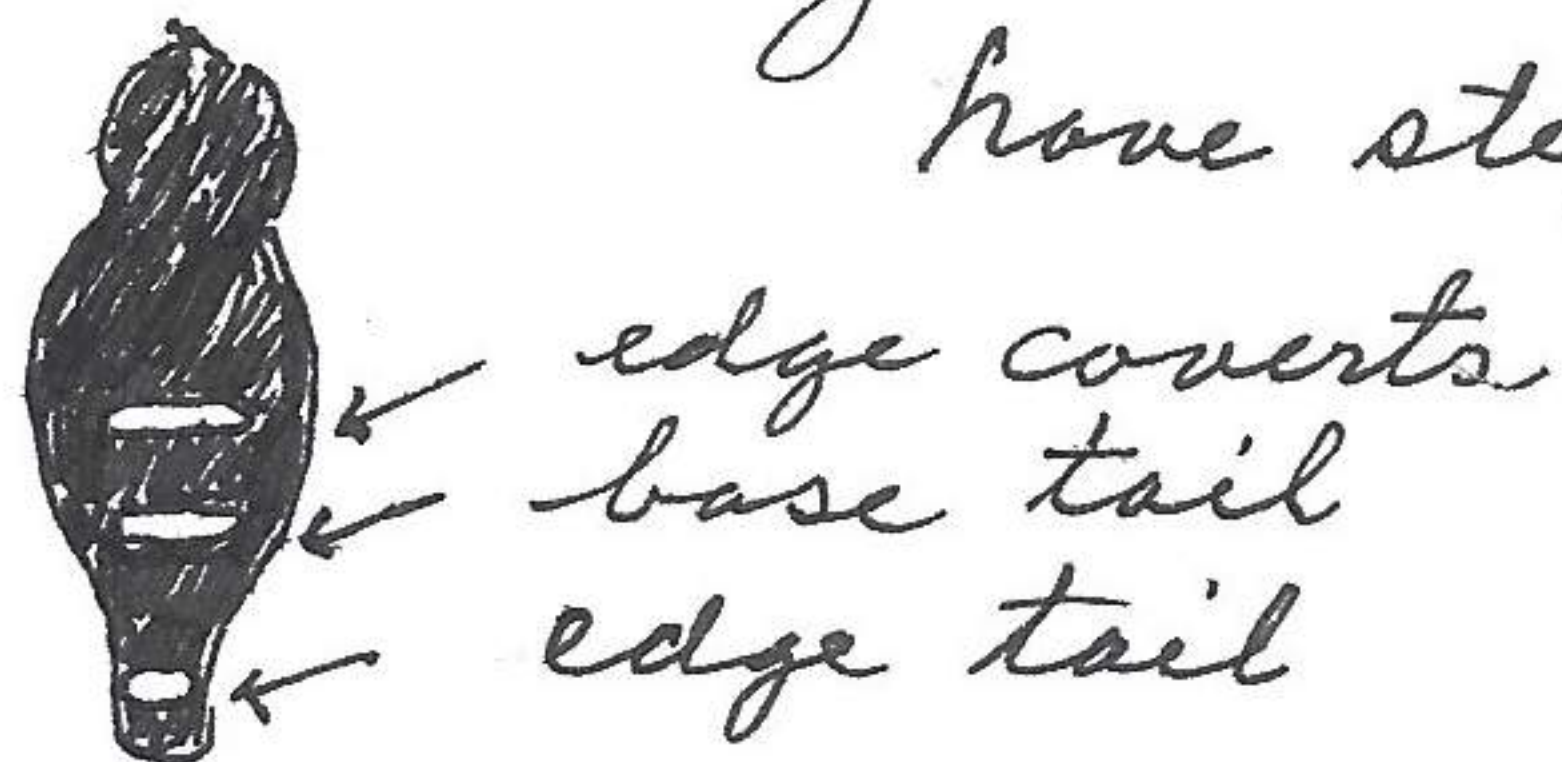 have
edge coverts
base tail
edge tail